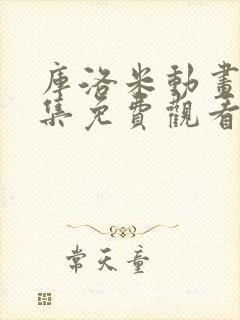 庫洛米動畫
集免費觀看
常天童